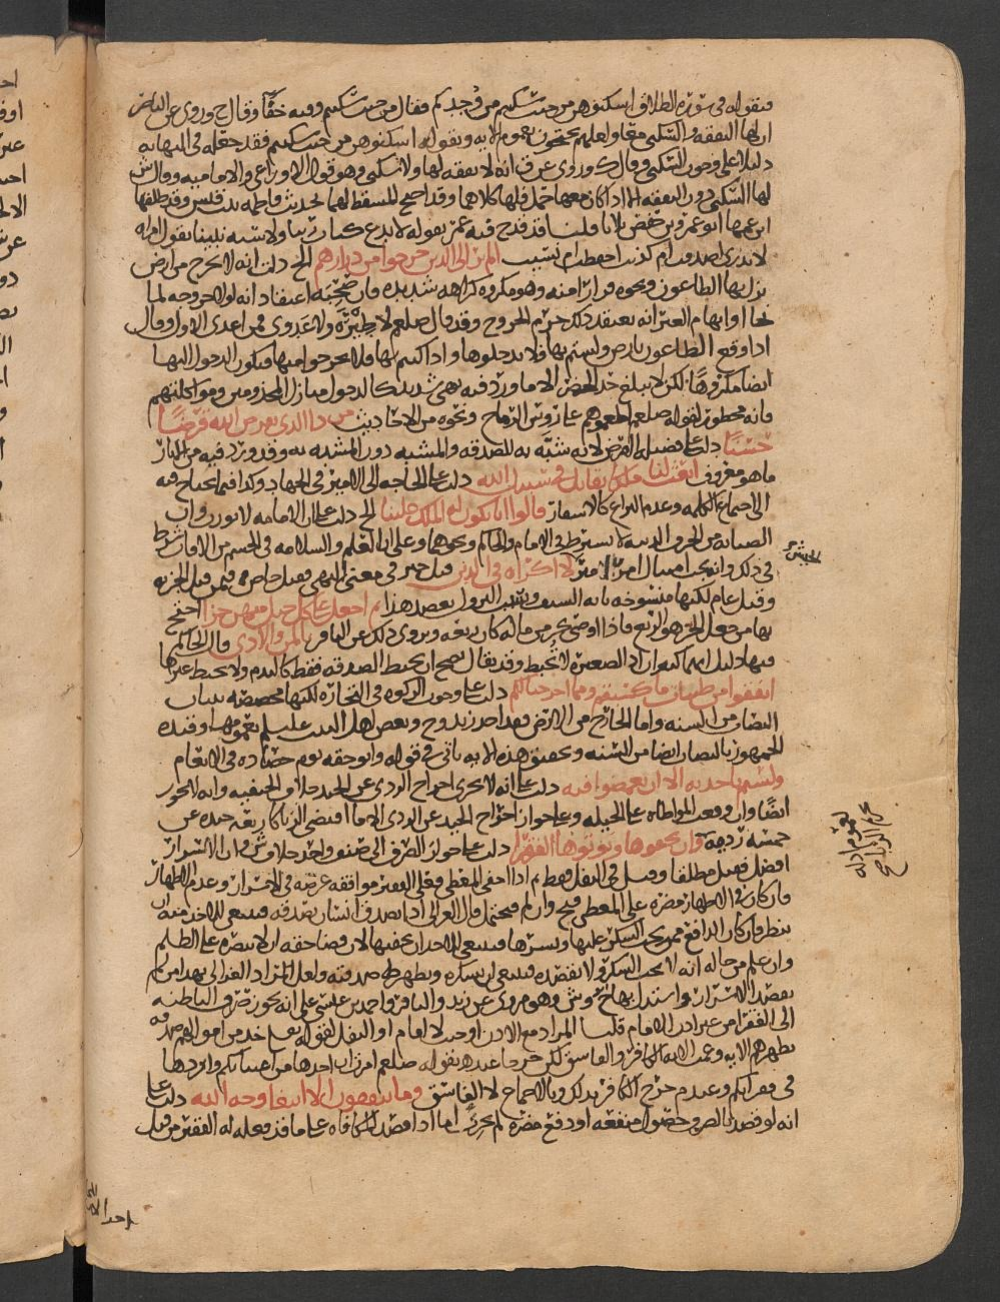 فبقوله في سورة الطلاق اسكنوهن من حيث سكنتم من وجدكم فقال من حيث سكنتم وفيه خفا وقال ح وروي عن الناصر
ان لها النفقه والسكنى معا ولعلهم يحتجون بعموم الايه وبقوله اسكنوهن من حيث سكنتم فقد جعله في النهايه
دليلا على وجوب السكنى وقال وروي عن ق انه لا نفقه لها ولا سكنى وهو قول الاوزاعي والاماميه وقال ش
لها السكنى دون النفقه الا اذا كان معها حمل فلها كلاهما وقد احتج المسقط لهما بحديث فاطمه بنت قيس وقد طلقها
ابن عمها ابو عمرو بن حفص ثلاثا قلنا قد قدح فيه عمر بقوله لا ندع كتاب ربنا ولا سنه نبينا بقول امراه
لا ندري اصدقت ام كذبت احفظت ام نسيت الم تر الى الذين خرجوا من ديارهم الخ دلت انه لا يخرج من ارض
نزل بها الطاعون ونحوه فرارا منه وهو مكروه كراهه شديده فان صحبه اعتقاد انه لولا خروجه لما
نجا او ايهام الغير انه يعتقد ذلك حرم الخروج وقد قال صلعم لا طيره ولا عدوى فمن اعدى الاول وقال
اذا وقع الطاعون بارض ولستم بها فلا تدخلوها واذا كنتم بها فلا تخرجوا منها فيكون الدخول اليها
ايضا مكروها لكن لا يبلغ حد الحضر الا ما ورد فيه نهي شديد كالدخول منازل المجذومين ومواكلتهم
فانه محظور لقوله صلعم عاروس الرماح ونحوه من الاحاديث من ذا الذي يقرض الله قرضا
حسنا دلت على فضيله القرض لانه شبه به للصدقه والمشبه دون المشبه به وقد ورد فيه من الاثار
ما هو معروف ابعث لنا ملكا نقاتل في سبيل الله دلت على الحاجه الى الامير في الجهاد وكذا فيما يحتاج فيه
الى اجتماع الكلمه وعدم النزاع كالاسفار قالوا انى يكون له الملك علينا الخ دلت على ان الامامه لا تورث وان
الصيانه من الحرف الدنيه لا يشترط في الامام والحاكم ونحوهما وعلى ان العلم والسلامه في الجسم من الافات شرط
في ذلك وانه يجب امتثال امر الامير لا اكراه في الدين قيل خبر في معنى النهي وقيل خاص فيمن قبل الجزيه
وقيل عام لكنها منسوخه بايه السيف وسبب النزول يعضد هذا ثم اجعل على كل جبل منهن جزا احتج
بها من جعل الجزء هو الربع فاذا اوصى بجزء من ماله كان ربعه ويروى ذلك عن الباقر بالمن والاذى قال الحاكم
فيها دليل انهما كبيران اذ الصغيره لا تحبط وقد يقال صح ان يحبط الصدقه فقط كالندم ولا يحبط غيرها
انفقوا من طيبات ما كسبتم ومما اخرجنا لكم دلت على وجوب الزكوه في التجاره لكنها مخصصه ببيان
النصاب من السنه واما الخارج من الارض فقد اخذ زيد وح وبعض اهل البيت عليلم بعمومها وقيده
الجمهور بالنصاب ايضا من السنه وتحقيق هذه الايه ياتي في قوله واتوا حقه يوم حصاده في الانعام
ولستم باخذيه الا ان تغمضوا فيه دلت على انه لا يجزي اخراج الردي عن الجيد خلاف الحنفيه وانه لا يجوز
ايضا وان وقعت المواطاه على الحيله وعلى جواز اخراج الجيد عن الردي الا ما اقتضى الربا كاربعه جيده عن
خمسه رديه وان تخفوها وتوتوها الفقرا دلت على جواز الصرف الى صنف واحد خلاف ش وان الاسرار
افضل فقيل مطلقا وقيل في النفل فقط ثم اذا اخفى المعطي فعلى الفقير موافقه غرضه في الاسرار وعدم الاظهار
فان كان في الاظهار مضره على المعطي قبح وان لم فيحتمل قال الغزالي اذا تصدق انسان بصدقه فينبغي للاخذ منه ان
ينظر فان كان الدافع ممن يحب الشكر عليها ونشرها فينبغي للاخذ ان يخفيها لان قضا حقه ان لا ينصره على الظلم
وان علم من حاله انه لا يحب الشكر ولا يقصده فينبغي ان يشكره ويظهر صدقته ولعل المراد الغزالي بهذا من لم
يقصد الاسرار واستدل بها ش وهو مروي عن زيد والباقر واحمد بن عيسى على انه يجوز صرف الباطنه
الى الفقرا من غير اذن الامام قلنا المراد مع الاذن او حيث لا امام او النفل لقوله تعالى خذ من اموالهم صدقه
تطهرهم الايه وعمت الايه الكافر والفاسق لكن خرجا عند ه بقوله صلعم امرت ان اخذها من اغنيائكم واردها
في فقرائكم وعند م خرج الكافر بذلك وبالاجماع لا الفاسق وما تنفقون الا ابتغا وجه الله دلت على
انه لو قصد بالصرف حصول منفعه او دفع مضره لم يجز اما اذا قصد المكافاه على ما قد فعله له الفقير من قبل
الجيش
لعموم ادله